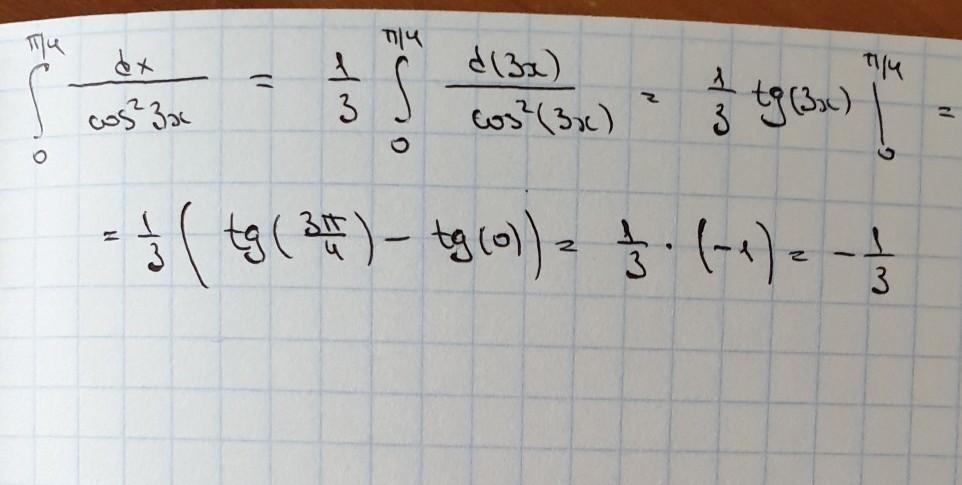 ∫_0^{π/4} dx / cos² 3x = 1/3 ∫_0^{π/4} d(3x) / cos²(3x) = 1/3 tg(3x) |_0^{π/4} =
= 1/3 ( tg( 3π/4 ) − tg(0) ) = 1/3 · (−1) = − 1/3